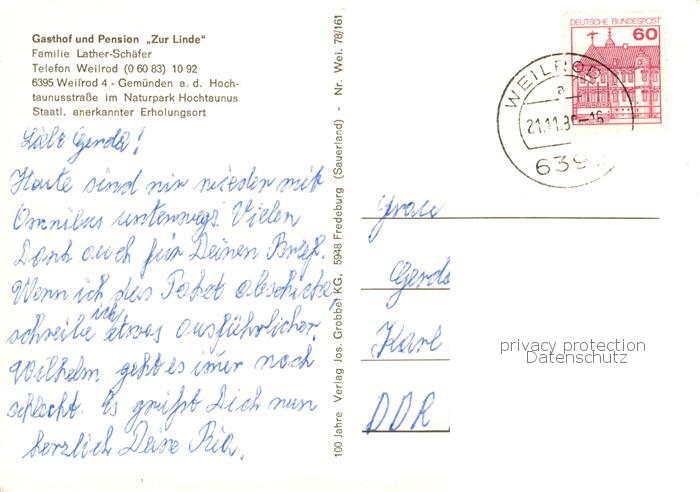 Gasthof und Pension „Zur Linde"
Familie Lather-Schäfer
Telefon Weilrod (0 60 83) 10 92
6395 Weilrod 4 - Gemünden a. d. Hoch-
taunusstraße im Naturpark Hochtaunus
Staatl. anerkannter Erholungsort
Liebe Gerda!
Heute sind wir wieder mit
Omnibus unterwegs. Vielen
Dank auch für Deinen Brief.
Wenn ich das Paket abschicke,
schreibe ich etwas ausführlicher.
Wilhelm geht es immer noch
schlecht. Es grüßt Dich nun
herzlich Deine Ria.
100 Jahre Verlag Jos. Grobbel KG, 5948 Fredeburg (Sauerland) - Nr. Wei. 78/161
DEUTSCHE BUNDESPOST
60
WEILROD
a
21.11.8 -16
639
Frau
Gerda
Karl
DDR
privacy protection
Datenschutz